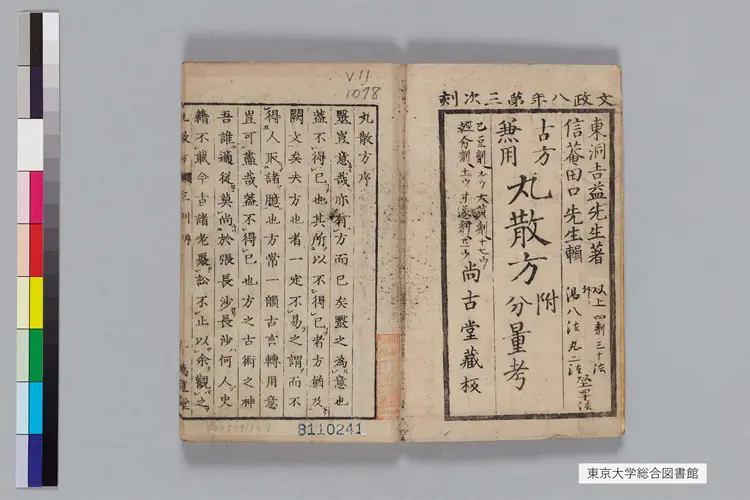 文政八年第三次刻
東洞吉益先生著
信菴田口先生輯
古方
兼用
丸散方
附
分量考
尚古堂藏板
以上四劑三十法
湯八法丸二法
丸散方序
毉豈意哉亦有方而已矣毉之為意也
蓋不得已也其所以不得已者方猶及
闕文矣夫方也者一定不易之謂而不
得人取諸臆也方常一韻古言轉用意
豈可盡哉蓋不得已也方之古術之神
吾誰適從莫尚於張長沙長沙何人史
籍不載今古諸老聚訟不止以余觀之
V11
1078
B110241
東京大学総合図書館